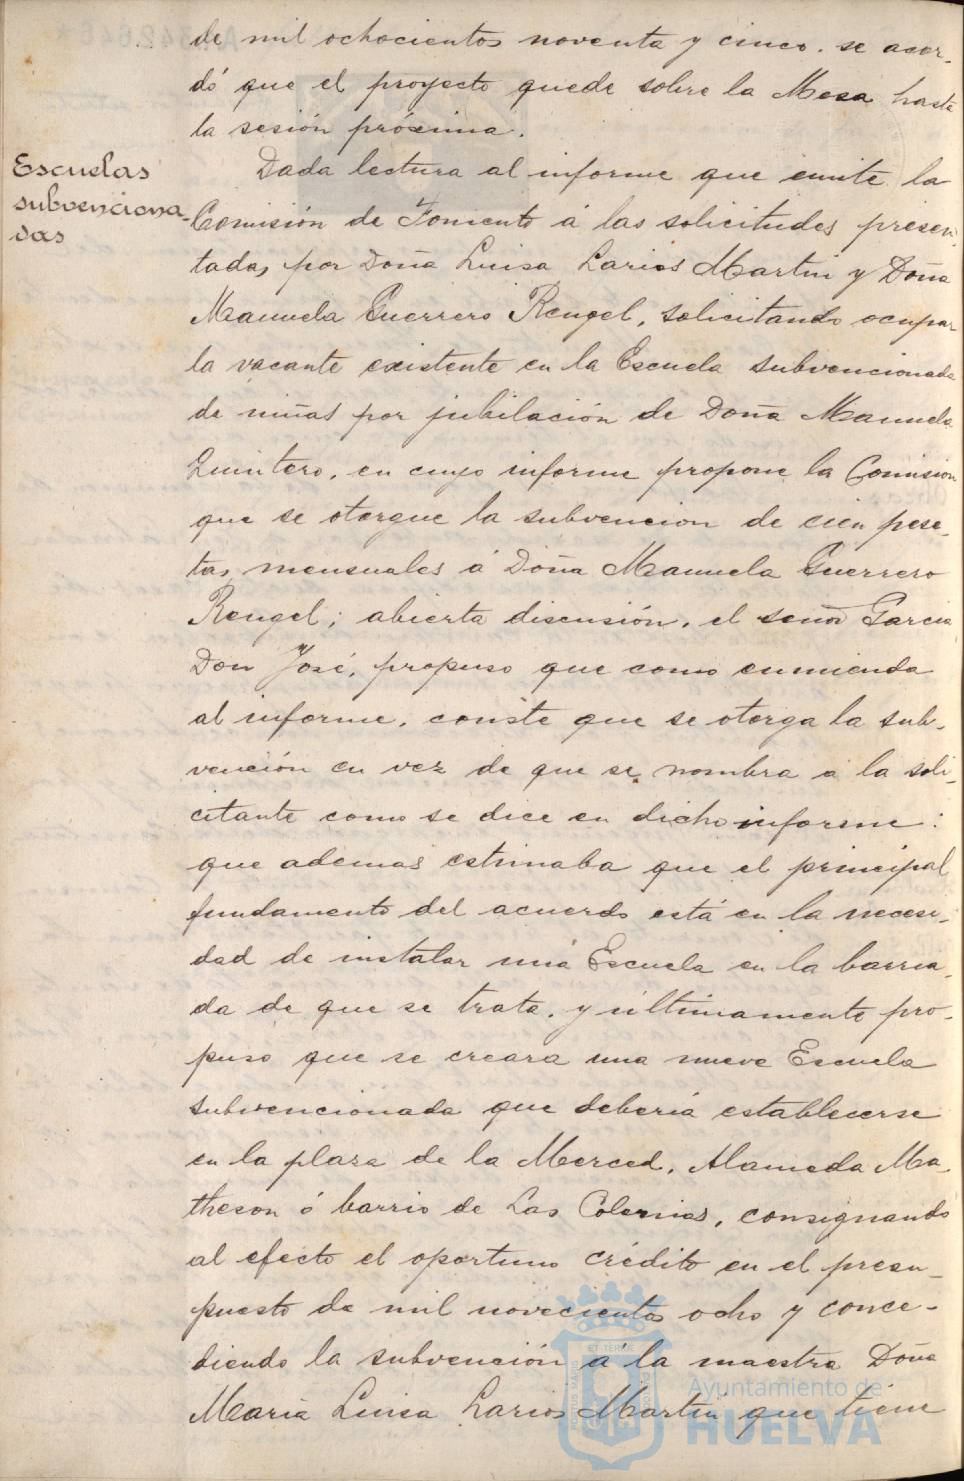 de mil ochocientos noventa y cinco. se acor-
dó que el proyecto quede sobre la Mesa hasta
la sesión próxima.
Escuelas
subvenciona-
das
Dada lectura al informe que emite la
Comisión de Fomento á las solicitudes presen-
tadas por Doña Luisa Larios Martin y Doña
Manuela Guerrero Rengel, solicitando ocupar
la vacante existente en la Escuela subvencionada
de niñas por jubilación de Doña Manuela
Quintero, en cuyo informe propone la Comision
que se otorgue la subvencion de cien pese-
tas mensuales á Doña Manuela Guerrero
Rengel; abierta discusión, el señor Garcia
Don José, propuso que como enmienda
al informe, conste que se otorga la sub-
vención en vez de que se nombra a la soli-
citante como se dice en dicho informe:
que ademas estimaba que el principal
fundamento del acuerdo está en la necesi-
dad de instalar una Escuela en la barria-
da de que se trata, y últimamente pro-
puso que se creara una nueve Escuela
subvencionada que deberia establecerse
en la plaza de la Merced, Alameda Ma-
theson ó barrio de Las Colonias, consignando
al efecto el oportuno crédito en el presu-
puesto de mil novecientos ocho y conce-
diendo la subvención á la maestra Doña
Maria Luisa Larios Martin que tiene
Ayuntamiento de
HUELVA